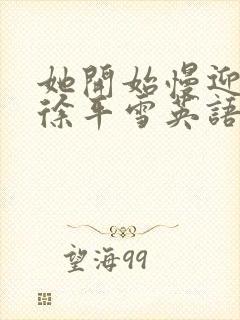 她開始慢迎
徐平雪英語
望海99